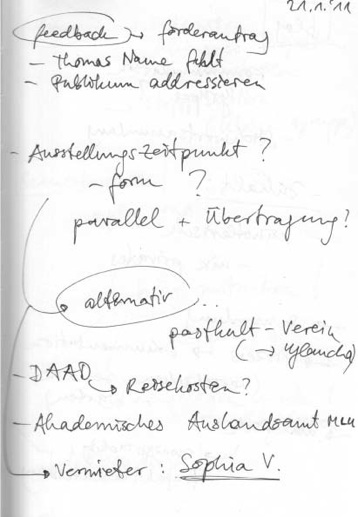 21.1.'11
feedback → förderantrag
- Thomas Name fehlt
- Publikum addressieren
- Ausstellungszeitpunkt ?
- form ?
parallel + Übertragung?
alternativ ..
- Verein
(→
- DAAD → Reisekosten?
- Akademisches Auslandsamt
→ Vermieter : Sophia V.